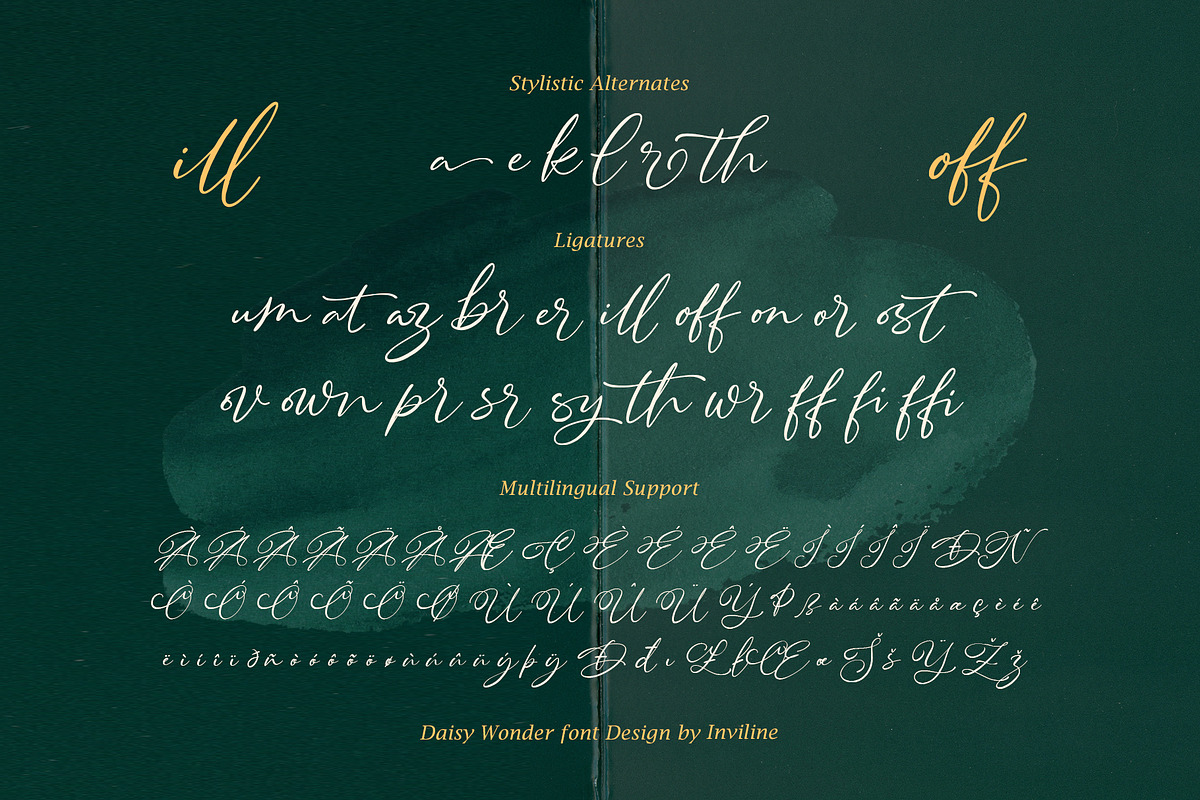 Stylistic Alternates
ill a e k l r o th off
Ligatures
um at az br er ill off on or ost
ov own pr sr sy th wr ff fi ffi
Multilingual Support
À Á Â Ã Ä Å Æ Ç È É Ê Ë Ì Í Î Ï Ð Ñ
Ò Ó Ô Õ Ö Ø Ù Ú Û Ü Ý Þ ß à á â ã ä å æ ç è é ê
ë ì í î ï ð ñ ò ó ô õ ö ø ù ú û ü ý þ ÿ Đ đ ı Ł ł Œ œ Š š Ÿ Ž ž
Daisy Wonder font Design by Inviline